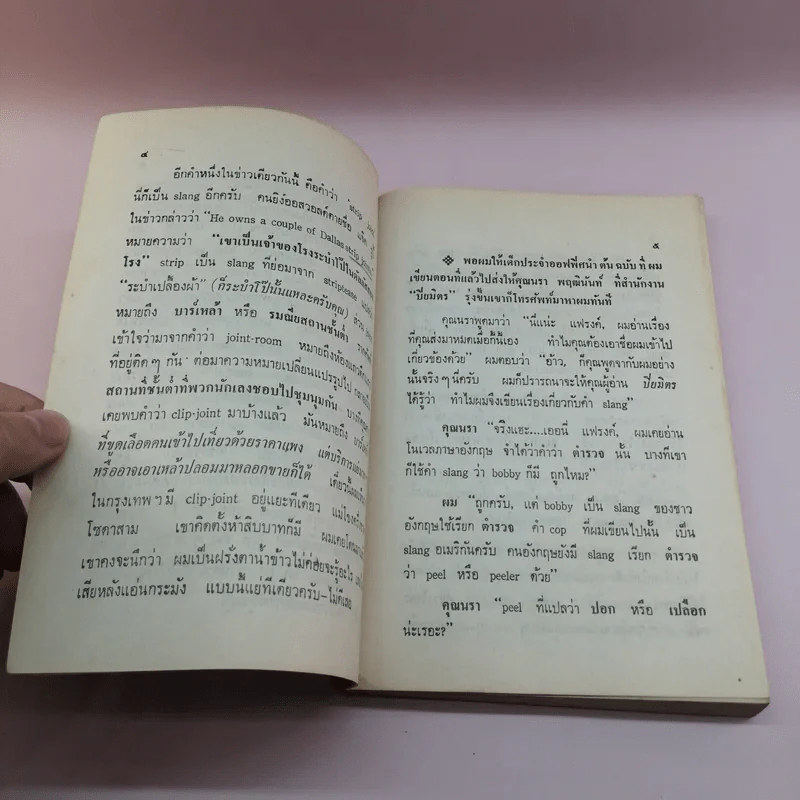 ๔
อีกคำหนึ่งในข่าวเดียวกันนี้ คือคำว่า "strip
นี่ก็เป็น slang อีกครับ คนยิงออสวอลด์ตายชื่อ แจ็ค
ในข่าวกล่าวว่า "He owns a couple of Dallas strip joints"
หมายความว่า "เขาเป็นเจ้าของโรงระบำโป๊ใน
โรง" strip เป็น slang ที่ย่อมาจาก striptease
"ระบำเปลื้องผ้า" (ก็ระบำโป๊นั้นแหละครับคุณ) ส่วน
หมายถึง บาร์เหล้า หรือ รมณียสถานชั้นต่ำ
เข้าใจว่ามาจากคำว่า joint-room หมายถึงห้อง
ที่อยู่ติดๆ กัน ต่อมาความหมายเปลี่ยนแปรรูปไป
สถานที่ชั้นต่ำที่พวกนักเลงชอบไปชุมนุมกัน
เคยพบคำว่า clip-joint มาบ้างแล้ว มันหมายถึง
ที่ขูดเลือดคนเข้าไปเที่ยวด้วยราคาแพง แต่บริการ
หรืออาจเอาเหล้าปลอมมาหลอกขายก็ได้
ในกรุงเทพฯ มี clip-joint อยู่แยะทีเดียว แม่โขง
โซดาสาม เขาคิดตั้งห้าสิบบาทก็มี ผมเคยโดน
เขาคงจะนึกว่า ผมเป็นฝรั่งตาน้ำข้าวไม่ค่อยจะรู้อะไร
เสียหลังแอ่นกระมัง แบบนี้แย่ทีเดียวครับ–ไม่ดีเลย
๕
❖ พอผมให้เด็กประจำออฟฟิศนำ ต้น ฉบับ ที่ ผม
เขียนตอนที่แล้วไปส่งให้คุณนรา พฤฒินันท์ ที่สำนักงาน
"ปิยมิตร" รุ่งขึ้นเขาก็โทรศัพท์มาหาผมทันที
คุณนราพูดมาว่า "นี่แน่ะ แฟรงค์, ผมอ่านเรื่อง
ที่คุณส่งมาหมดเมื่อกี้นี้เอง ทำไมคุณต้องเอาชื่อผมเข้าไป
เกี่ยวข้องด้วย" ผมตอบว่า "อ้าว, ก็คุณพูดจากับผมอย่าง
นั้นจริงๆ นี่ครับ ผมก็ปรารถนาจะให้คุณผู้อ่าน ปิยมิตร
ได้รู้ว่า ทำไมผมจึงเขียนเรื่องเกี่ยวกับคำ slang"
คุณนรา "จริงแฮะ....เออนี่ แฟรงค์, ผมเคยอ่าน
โนเวลภาษาอังกฤษ จำได้ว่าคำว่า ตำรวจ นั้น บางทีเขา
ก็ใช้คำ slang ว่า bobby ก็มี ถูกไหม?"
ผม "ถูกครับ, แต่ bobby เป็น slang ของชาว
อังกฤษใช้เรียก ตำรวจ คำ cop ที่ผมเขียนไปนั้น เป็น
slang อเมริกันครับ คนอังกฤษยังมี slang เรียก ตำรวจ
ว่า peel หรือ peeler ด้วย"
คุณนรา "peel ที่แปลว่า ปอก หรือ เปลือก
น่ะเรอะ?"